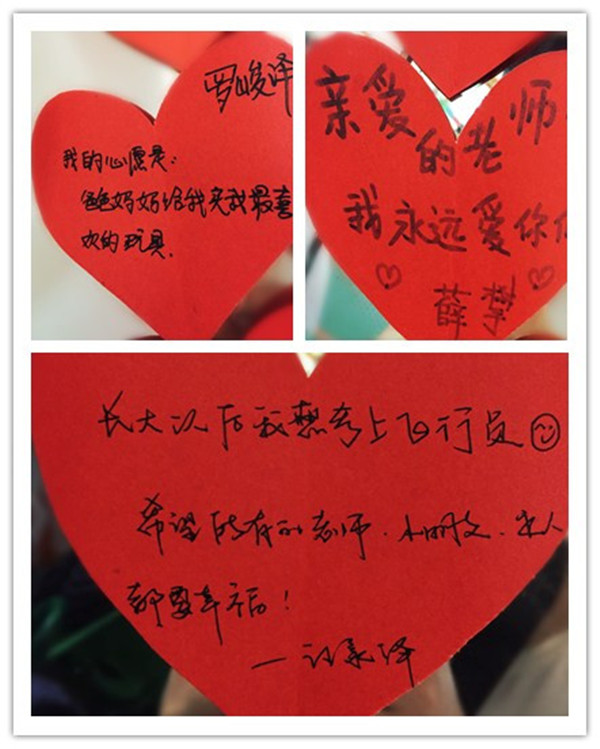 罗峻泽
我的心愿是:
爸爸妈妈给我买我最喜
欢的玩具.
亲爱
的老师
我永远爱你们
♡ ♡
薛梦
长大以后我想考上飞行员☺
希望所有的老师、小朋友、家人
都要幸福!